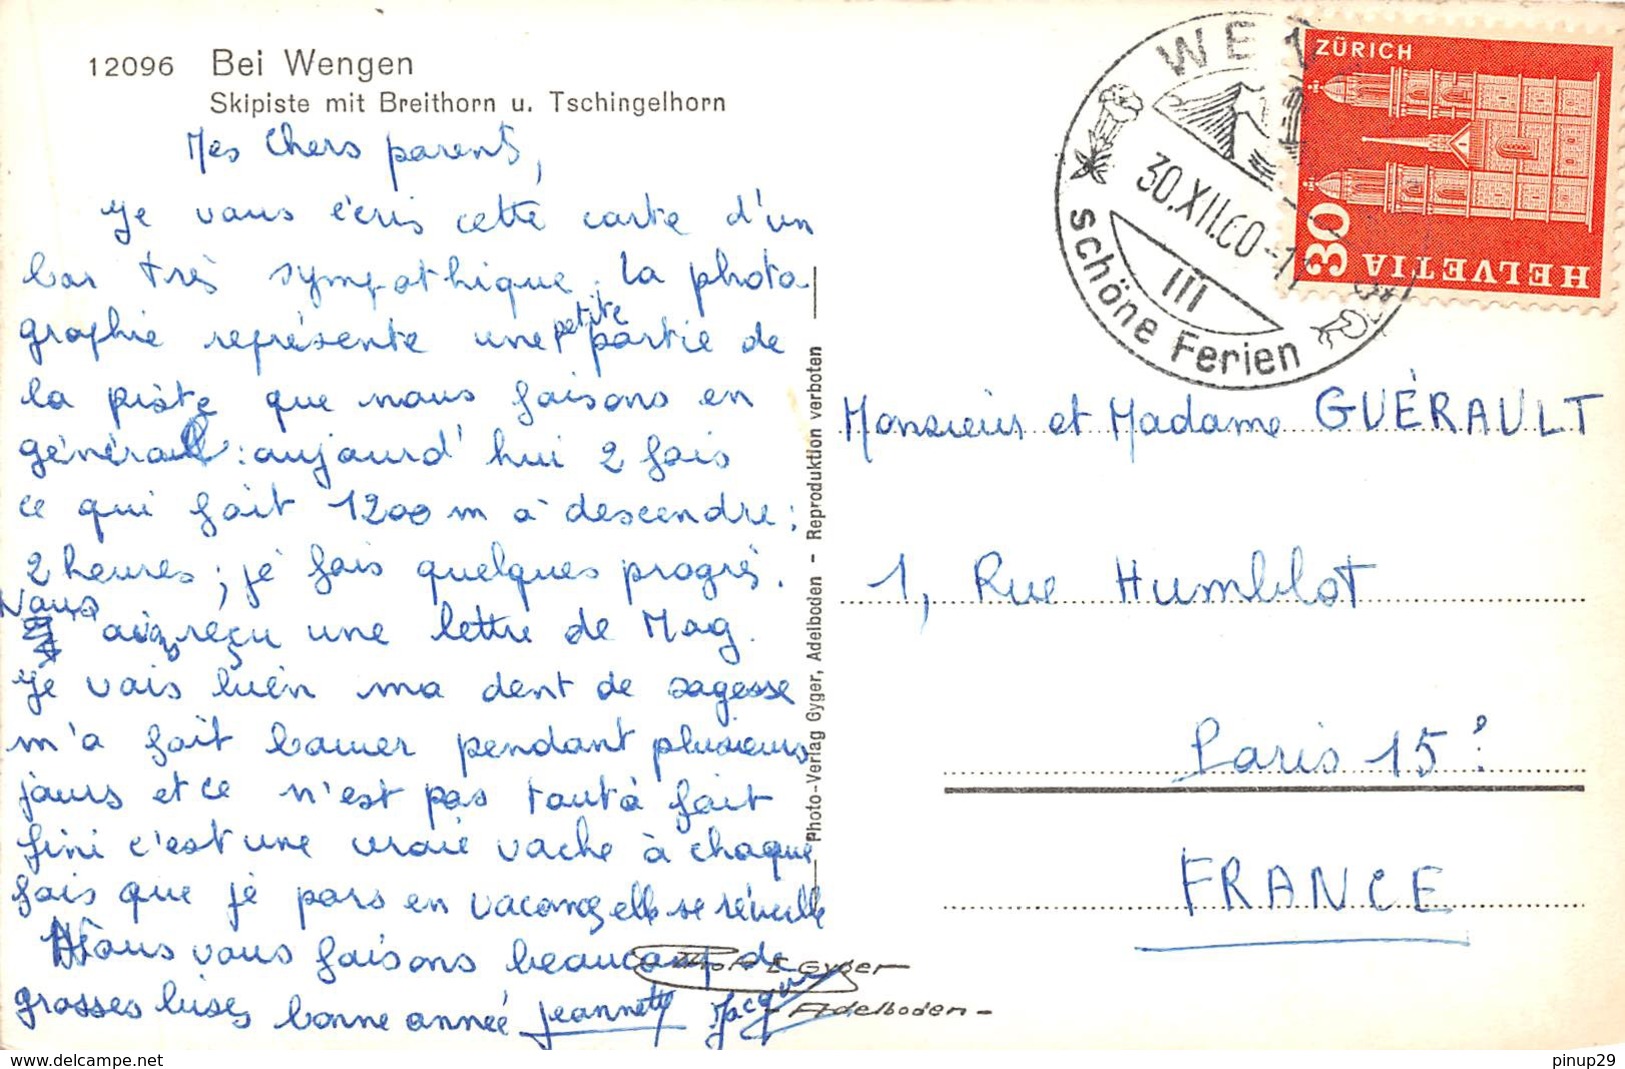 12096 Bei Wengen
Skipiste mit Breithorn u. Tschingelhorn
Mes Chers parents,
Je vous écris cette carte d'un
bar très sympathique. La photo-
graphie représente une petite partie de
la piste que nous faisons en
général : aujourd'hui 2 fois
ce qui fait 1200 m à descendre :
2 heures ; je fais quelques progrès.
Nous avons reçu une lettre de Mag.
Je vais bien ma dent de sagesse
m'a fait baver pendant plusieurs
jours et ce n'est pas tout à fait
fini c'est une vraie vache à chaque
fois que je pars en vacances elle se réveille
Nous vous faisons beaucoup de
grosses bises bonne année Jeannette Jacques
Photo-Verlag Gyger, Adelboden - Reproduktion verboten
Photo E Gyger
Adelboden
WEN
30.XII.60-1
III
Schöne Ferien
ZÜRICH
30
HELVETIA
Monsieur et Madame GUÉRAULT
1, Rue Humblot
Paris 15e
FRANCE
www.delcampe.net
pinup29